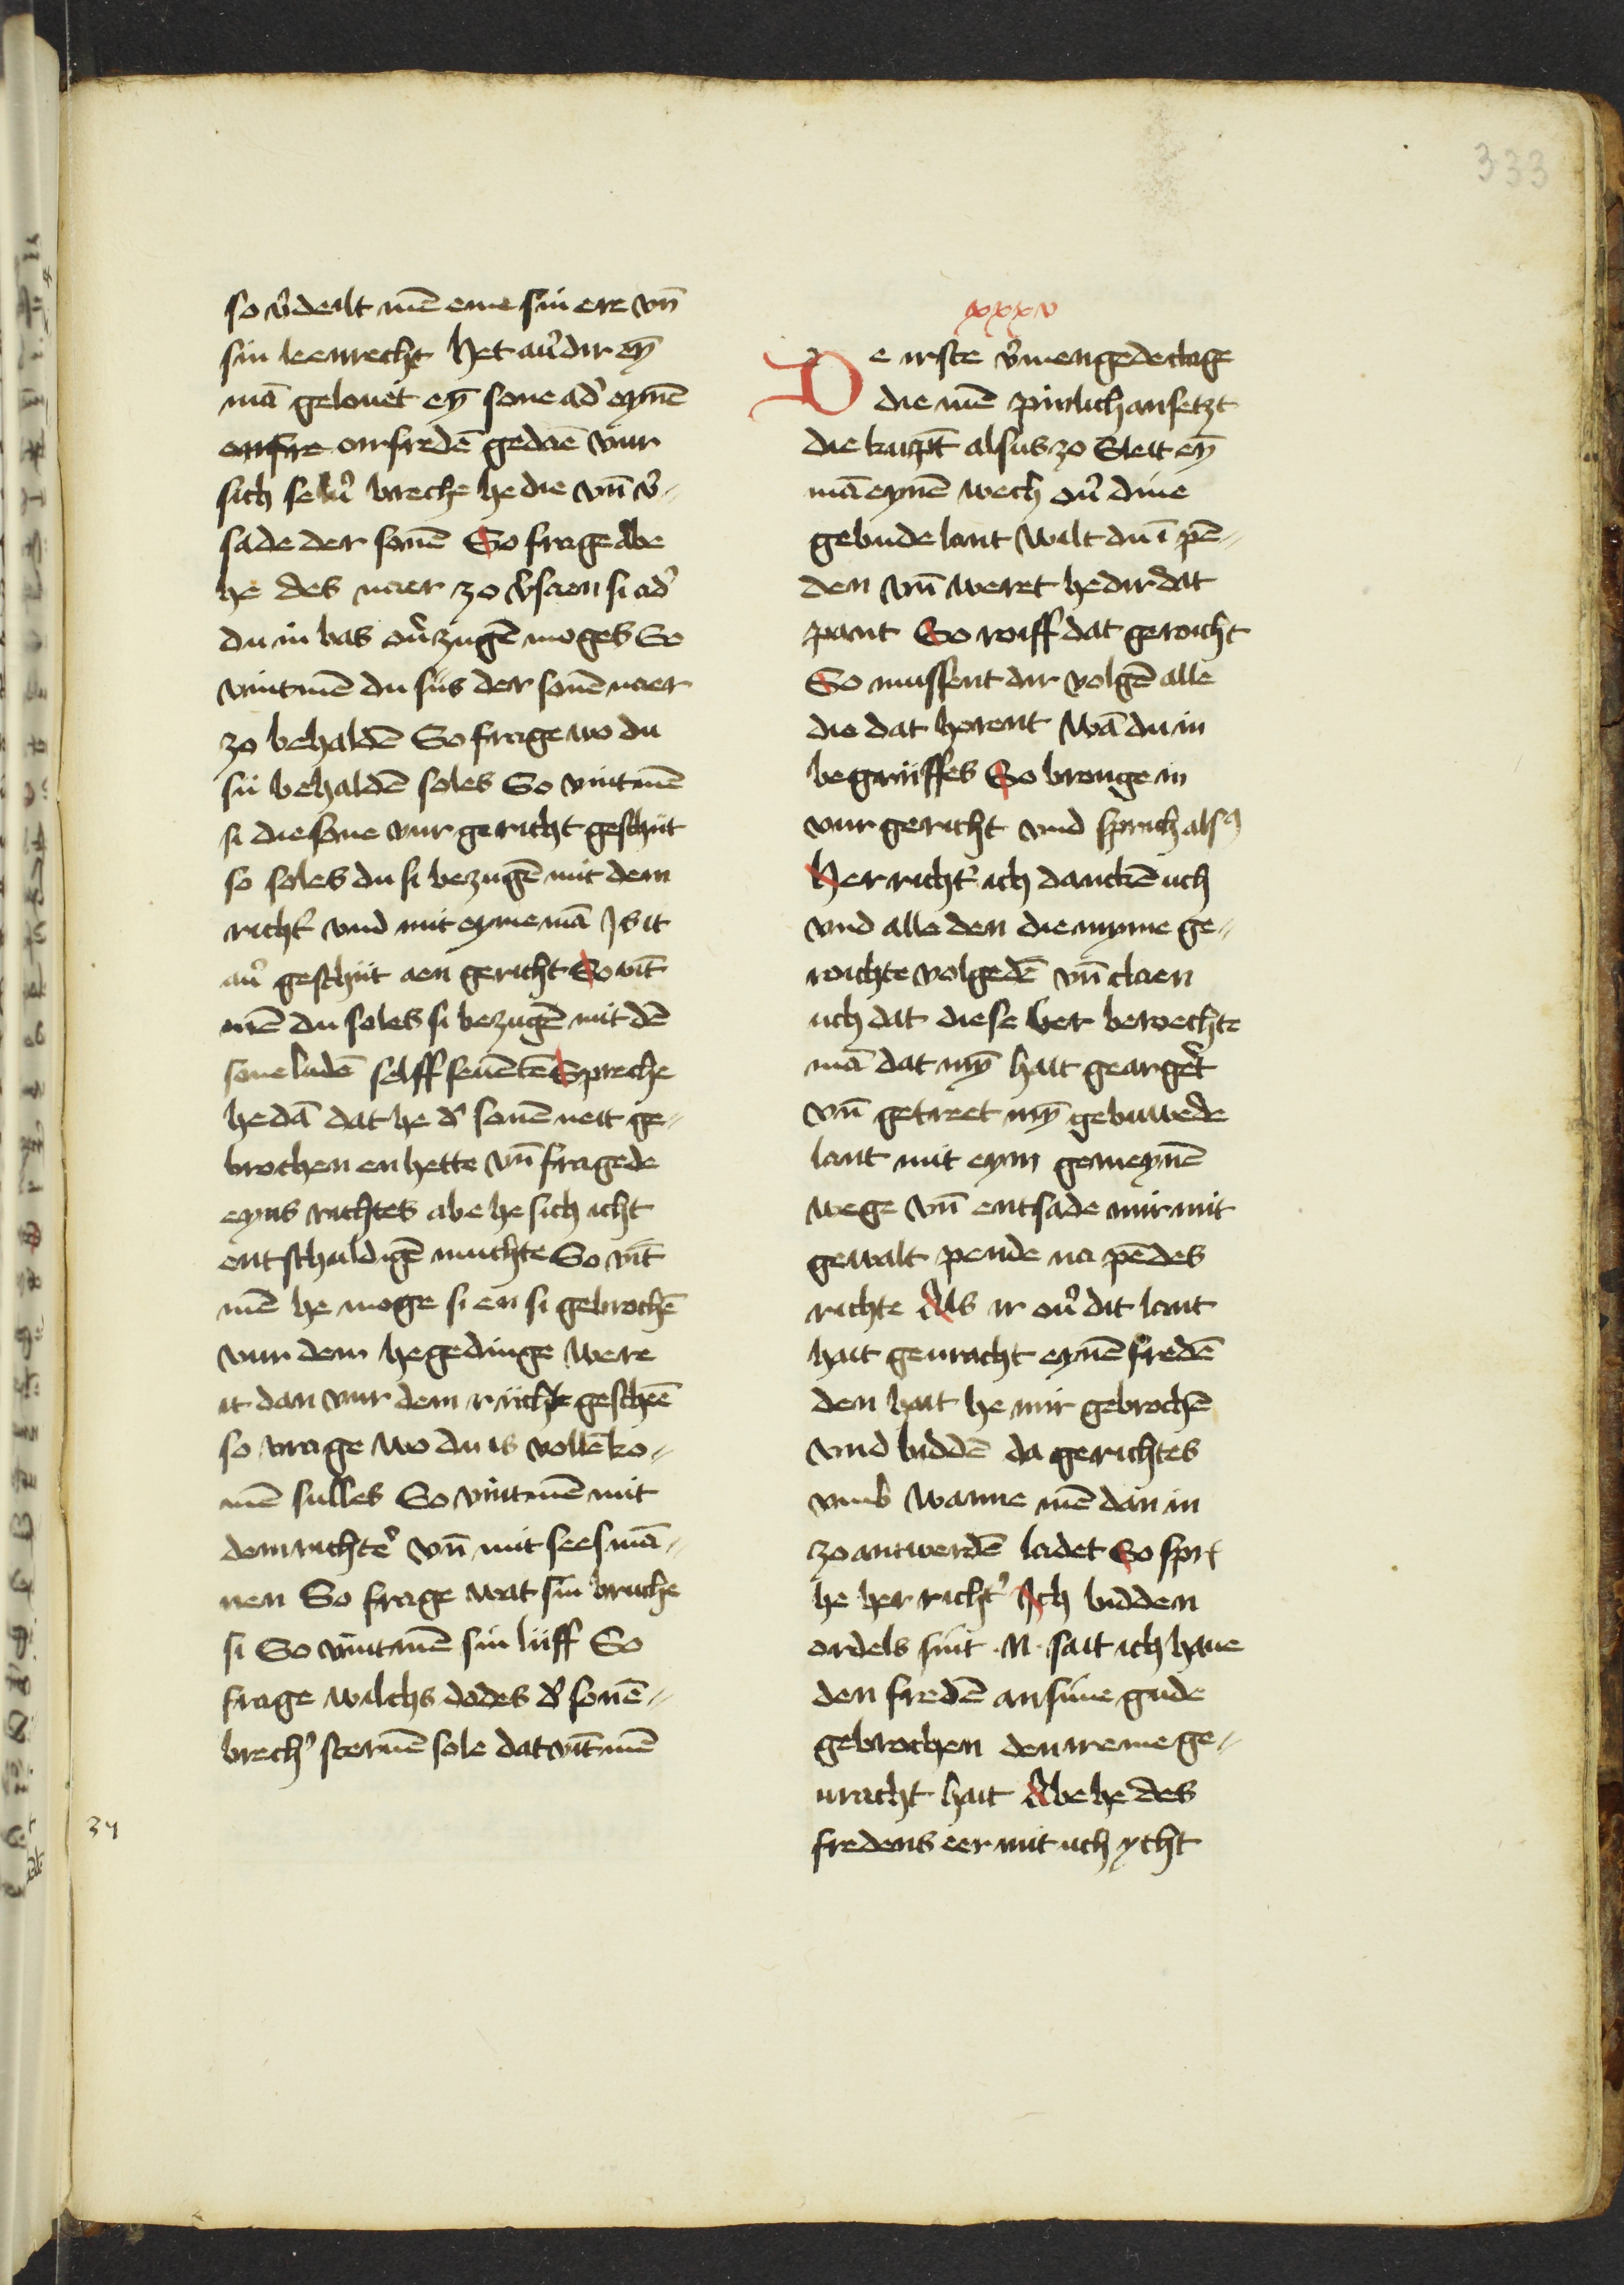 333
so v̉deilt mē eme sin ere vn̄
sin leenrecht Het au̓ dir eȳ
mā gelouet eȳ sone ad̓ eynē
orfredē gedaē vur
sich selu̓ breche he die vn̄ v̓-
sade der sonē So frage abe
he des naer zo v̓saen si ad̓
du in bas ou̓zugē moges So
vintmē du siis der sonē naer
zo behaldē So frage wo du
sii behaldē soles So vintmē
si die sone vur gericht geschiit
so soles du si bezugē mit dem
richt̓ vnd mit eyme mā Js it
au̓ geschiit aen gericht So vīt
mē du soles si bezugē mit dē
soneludē selff seuētē Spreche
he dā dat he d̓ sonē neit ge-
brochen en hette vn̄ fragede
eyns richtes abe he sich icht
entschuldigē muchte So vīt
mē he moge si en si gebrochē
vur dem hegedinge Were
it dan vur dem riichte gescheē
so vrage wo du is vollēko-
mē sulles So vintmē mit
dem richtē̓ vn̄ mit sees mā-
nen So frage wat sin bruche
si So vintmē sin liiff So
frage wilchs dodes d̓ sonē-
brech̓ steruē sole dat vītmē
34
xxxv
De irste v̓mengede clage
die mē pinlich ansetzt
die kupt alsus zo Sleit eȳ
mā eynē wech ou̓ dine
gebude lant Wilt du ī pē-
den vn̄ weret he dir dat
pant So roiff dat geroicht
So mussent dir volgē alle
die dat horent Wā du in
begriiffes So brenge in
vur gericht vnd sprich als9
Her richt̓ ich danckē uch
vnd alle den die myme ge-
roichte volgedē vn̄ claen
uch dat diese her beroechte
mā dat mȳ hait gearget̓
vn̄ getreet mȳ gebuwede
lant mit eym gemeynē
wege vn̄ entsade mir mit
gewalt pende na pēdes
richte Als ir ou̓ dit lant
hait geuracht eynē fredē
den hait he mir gebrochē
vnd biddē da gerichtes
vmb Wanne mē dan in
zo antwerdē ladet So spr
he her richt̓ Ich bidden
ordels sint .N. sait ich haue
den fredē an sime gude
gebrochen den ir eme ge-
uracht hait Abe he des
fredens eer mit uch ycht